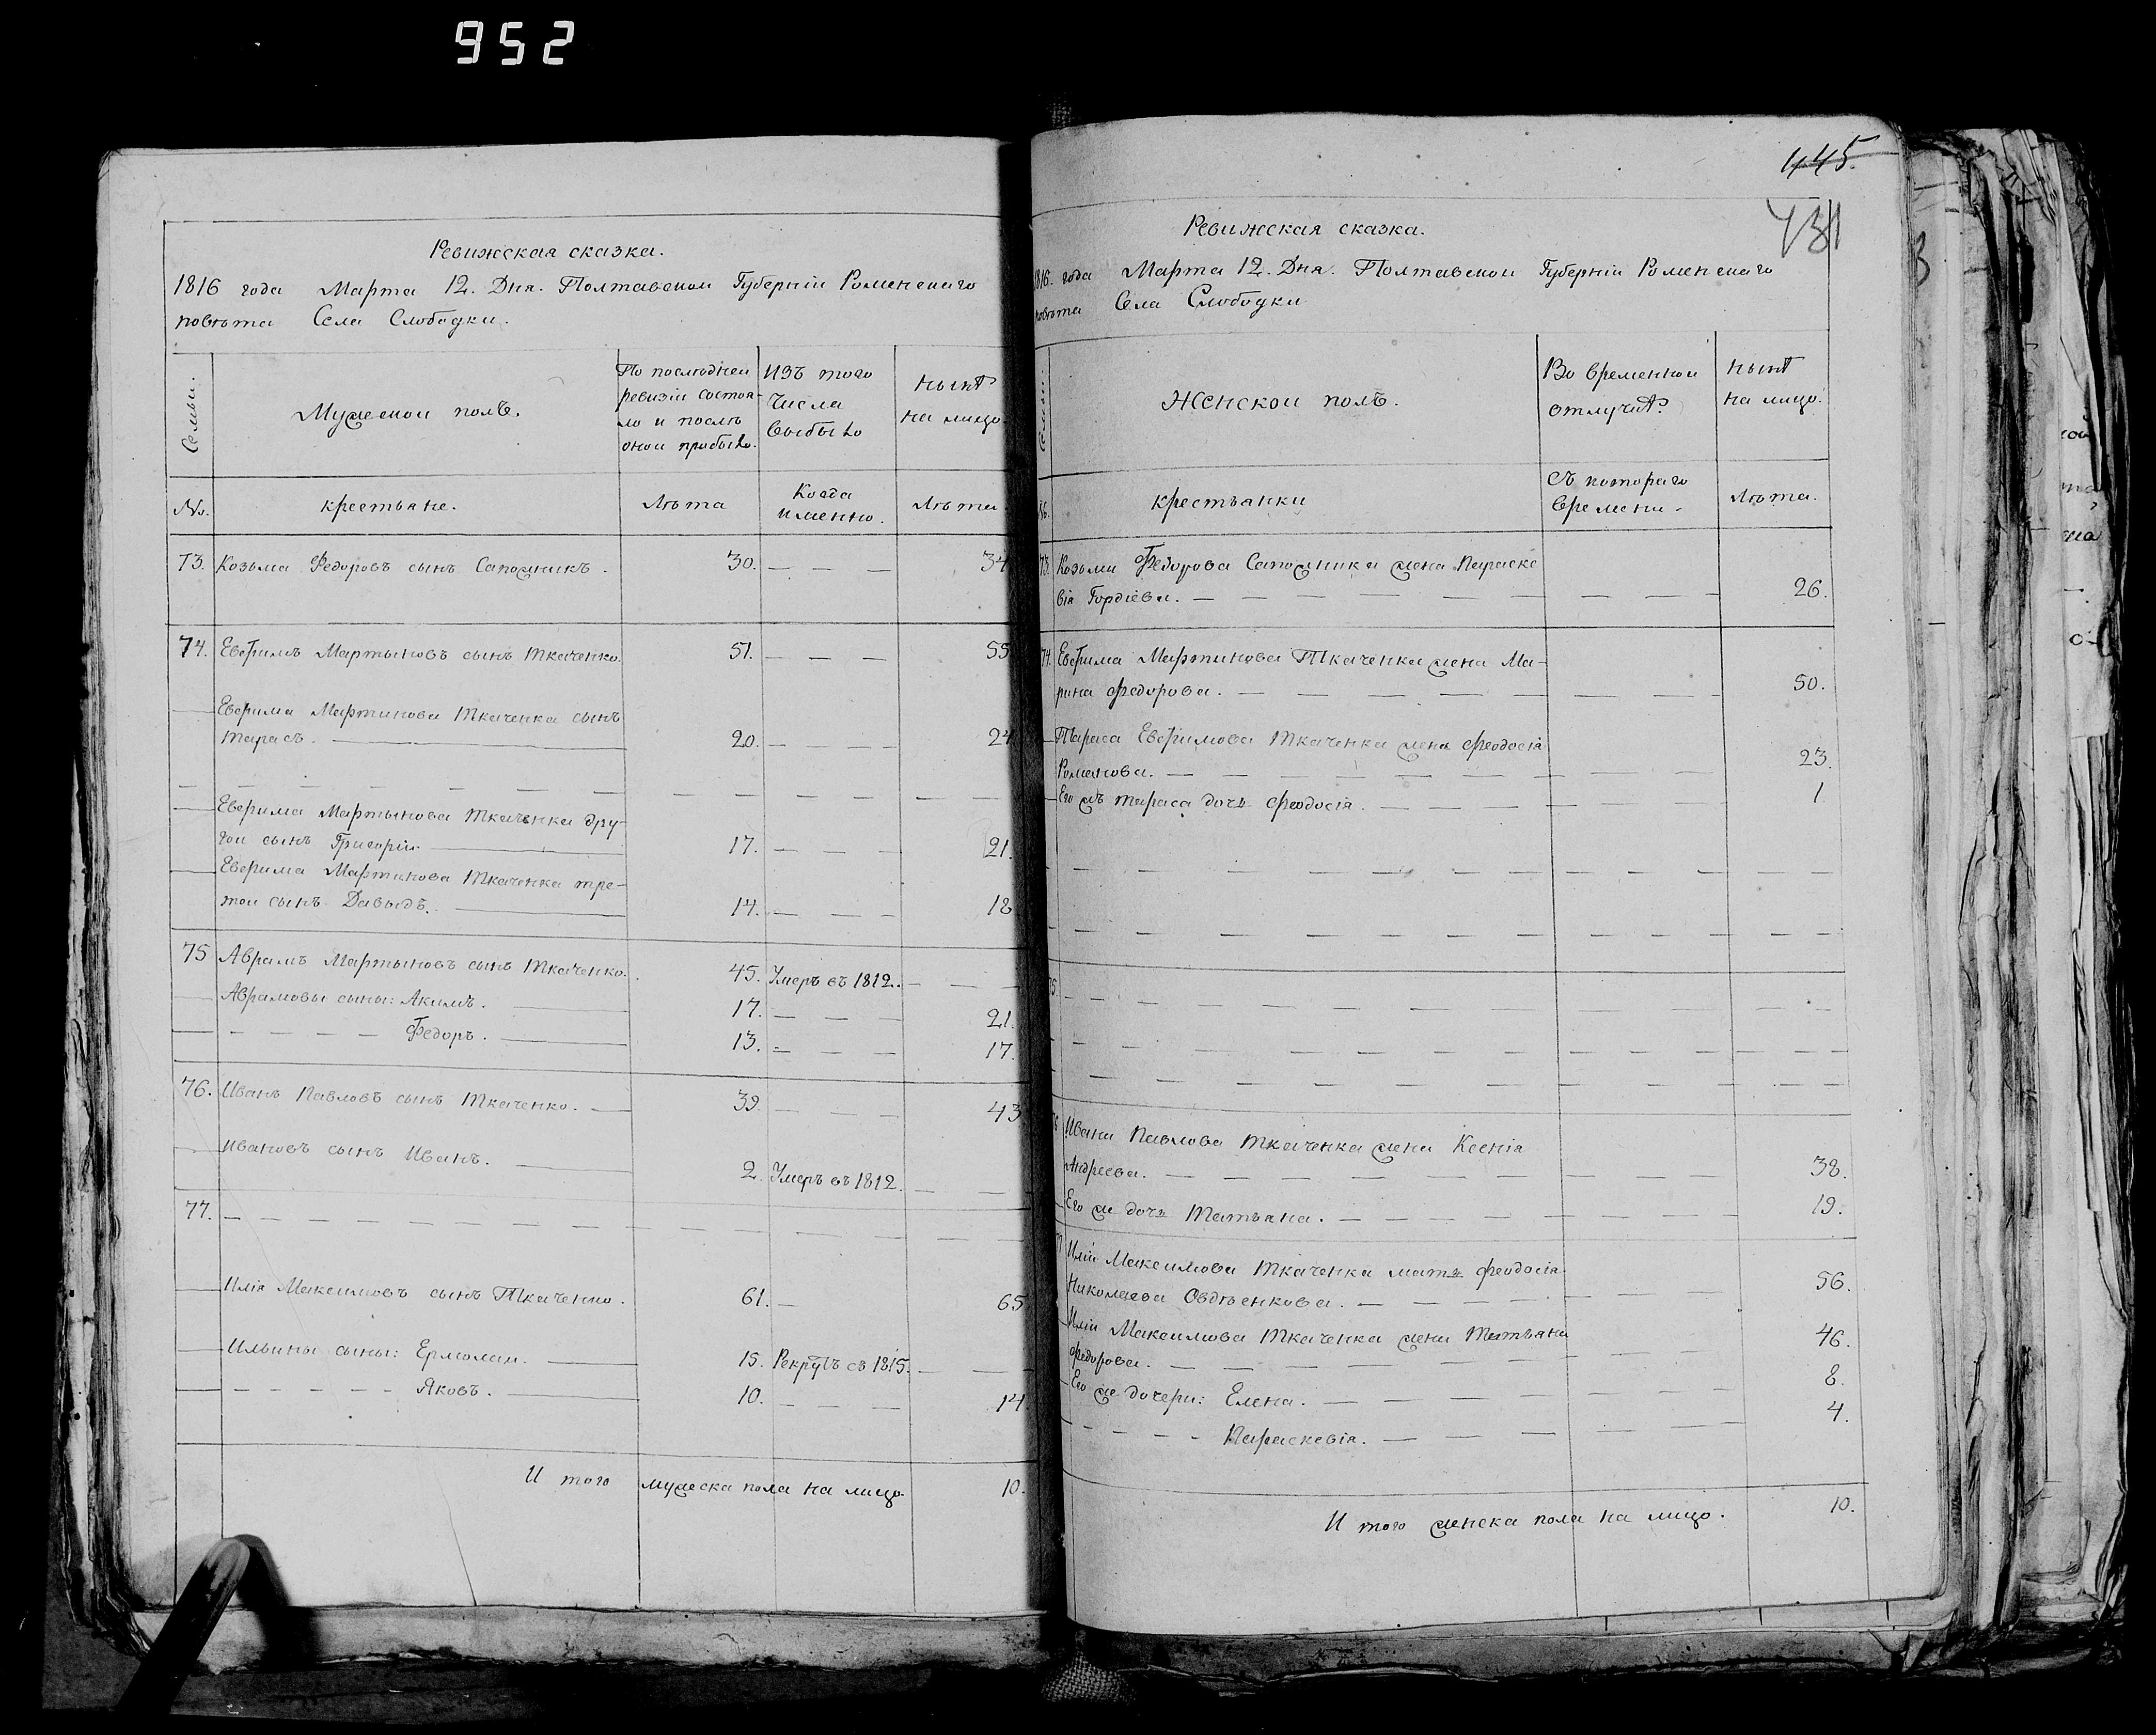 952
Ревижская сказка.
1816 года Марта 12. Дня. Полтавской Губернiи Роменскаго
повѣта Села Слободки.
Семьи.
Мужеской полъ.
По послѣдней
ревизiи состоя-
ло и послѣ
оной прибыло.
Изъ того
числа
выбыло
Нынѣ
на лицо
No.
крестьяне.
Лѣта
Когда
именно.
Лѣта
73. Козьма Федоровъ сынъ Сапожникъ. 30. — — — 34
74. Евфимъ Мартыновъ сынъ Ткаченко. 51. — — — 55
Евфима Мартинова Ткаченка сынъ
Тарасъ. 20. — — — 24
Евфима Мартынова Ткаченка дру-
гой сынъ Григорiй. 17. — — — 21.
Евфима Мартинова Ткаченка тре-
той сынъ Давыдъ. 14. — — — 18
75 Аврамъ Мартыновъ сынъ Ткаченко. 45. Умеръ въ 1812. — — —
Аврамовы сыны: Акимъ. 17. — — — 21.
— — — — Федоръ. 13. — — — 17.
76. Иванъ Павловъ сынъ Ткаченко. — 39. — — — 43
Ивановъ сынъ Иванъ. 2. Умеръ въ 1812. — —
77. — — — — — — — —
Илiя Максимовъ сынъ Ткаченко. 61. — 65
Ильины сыны: Ермолай. 15. Рекрутъ съ 1815. — —
— — — — — Яковъ. 10. — — — 14
И того мужеска пола на лицо 10.
445.
431
Ревижская сказка.
1816. года Марта 12. Дня. Полтавской Губернiи Роменскаго
повѣта Села Слободки
Семьи.
Женской полъ.
Во временной
отлучкѣ?
Нынѣ
на лицо.
крестьянки
Съ котораго
времени.
Лѣта.
73. Козьми Федорова Сапожника жена Параске
вiя Гордiева. — — — — — — — — 26.
74. Евфима Мартинова Ткаченка жена Ма-
рина Федорова. — — — — — — — 50.
Тараса Евфимова Ткаченка жена Феодосiя
Романова. — — — — — — — 23.
Его жъ Тараса дочь Феодосiя. — — — — 1
75. — — — — — — — —
76 Ивана Павлова Ткаченка жена Ксенiя
Андреева. — — — — — — — 38.
Его же дочь Татьяна. — — — — — — 19.
77 Илiи Максимова Ткаченка мать Феодосiя
Николаева Овдѣенкова. — — — — — 56.
Илiи Максимова Ткаченка жена Татьяна
Федорова. — — — — — — 46.
Его же дочери: Елена. — — — — 8.
— — — — Параскевiя. — — — — 4.
И того женска пола на лицо. 10.